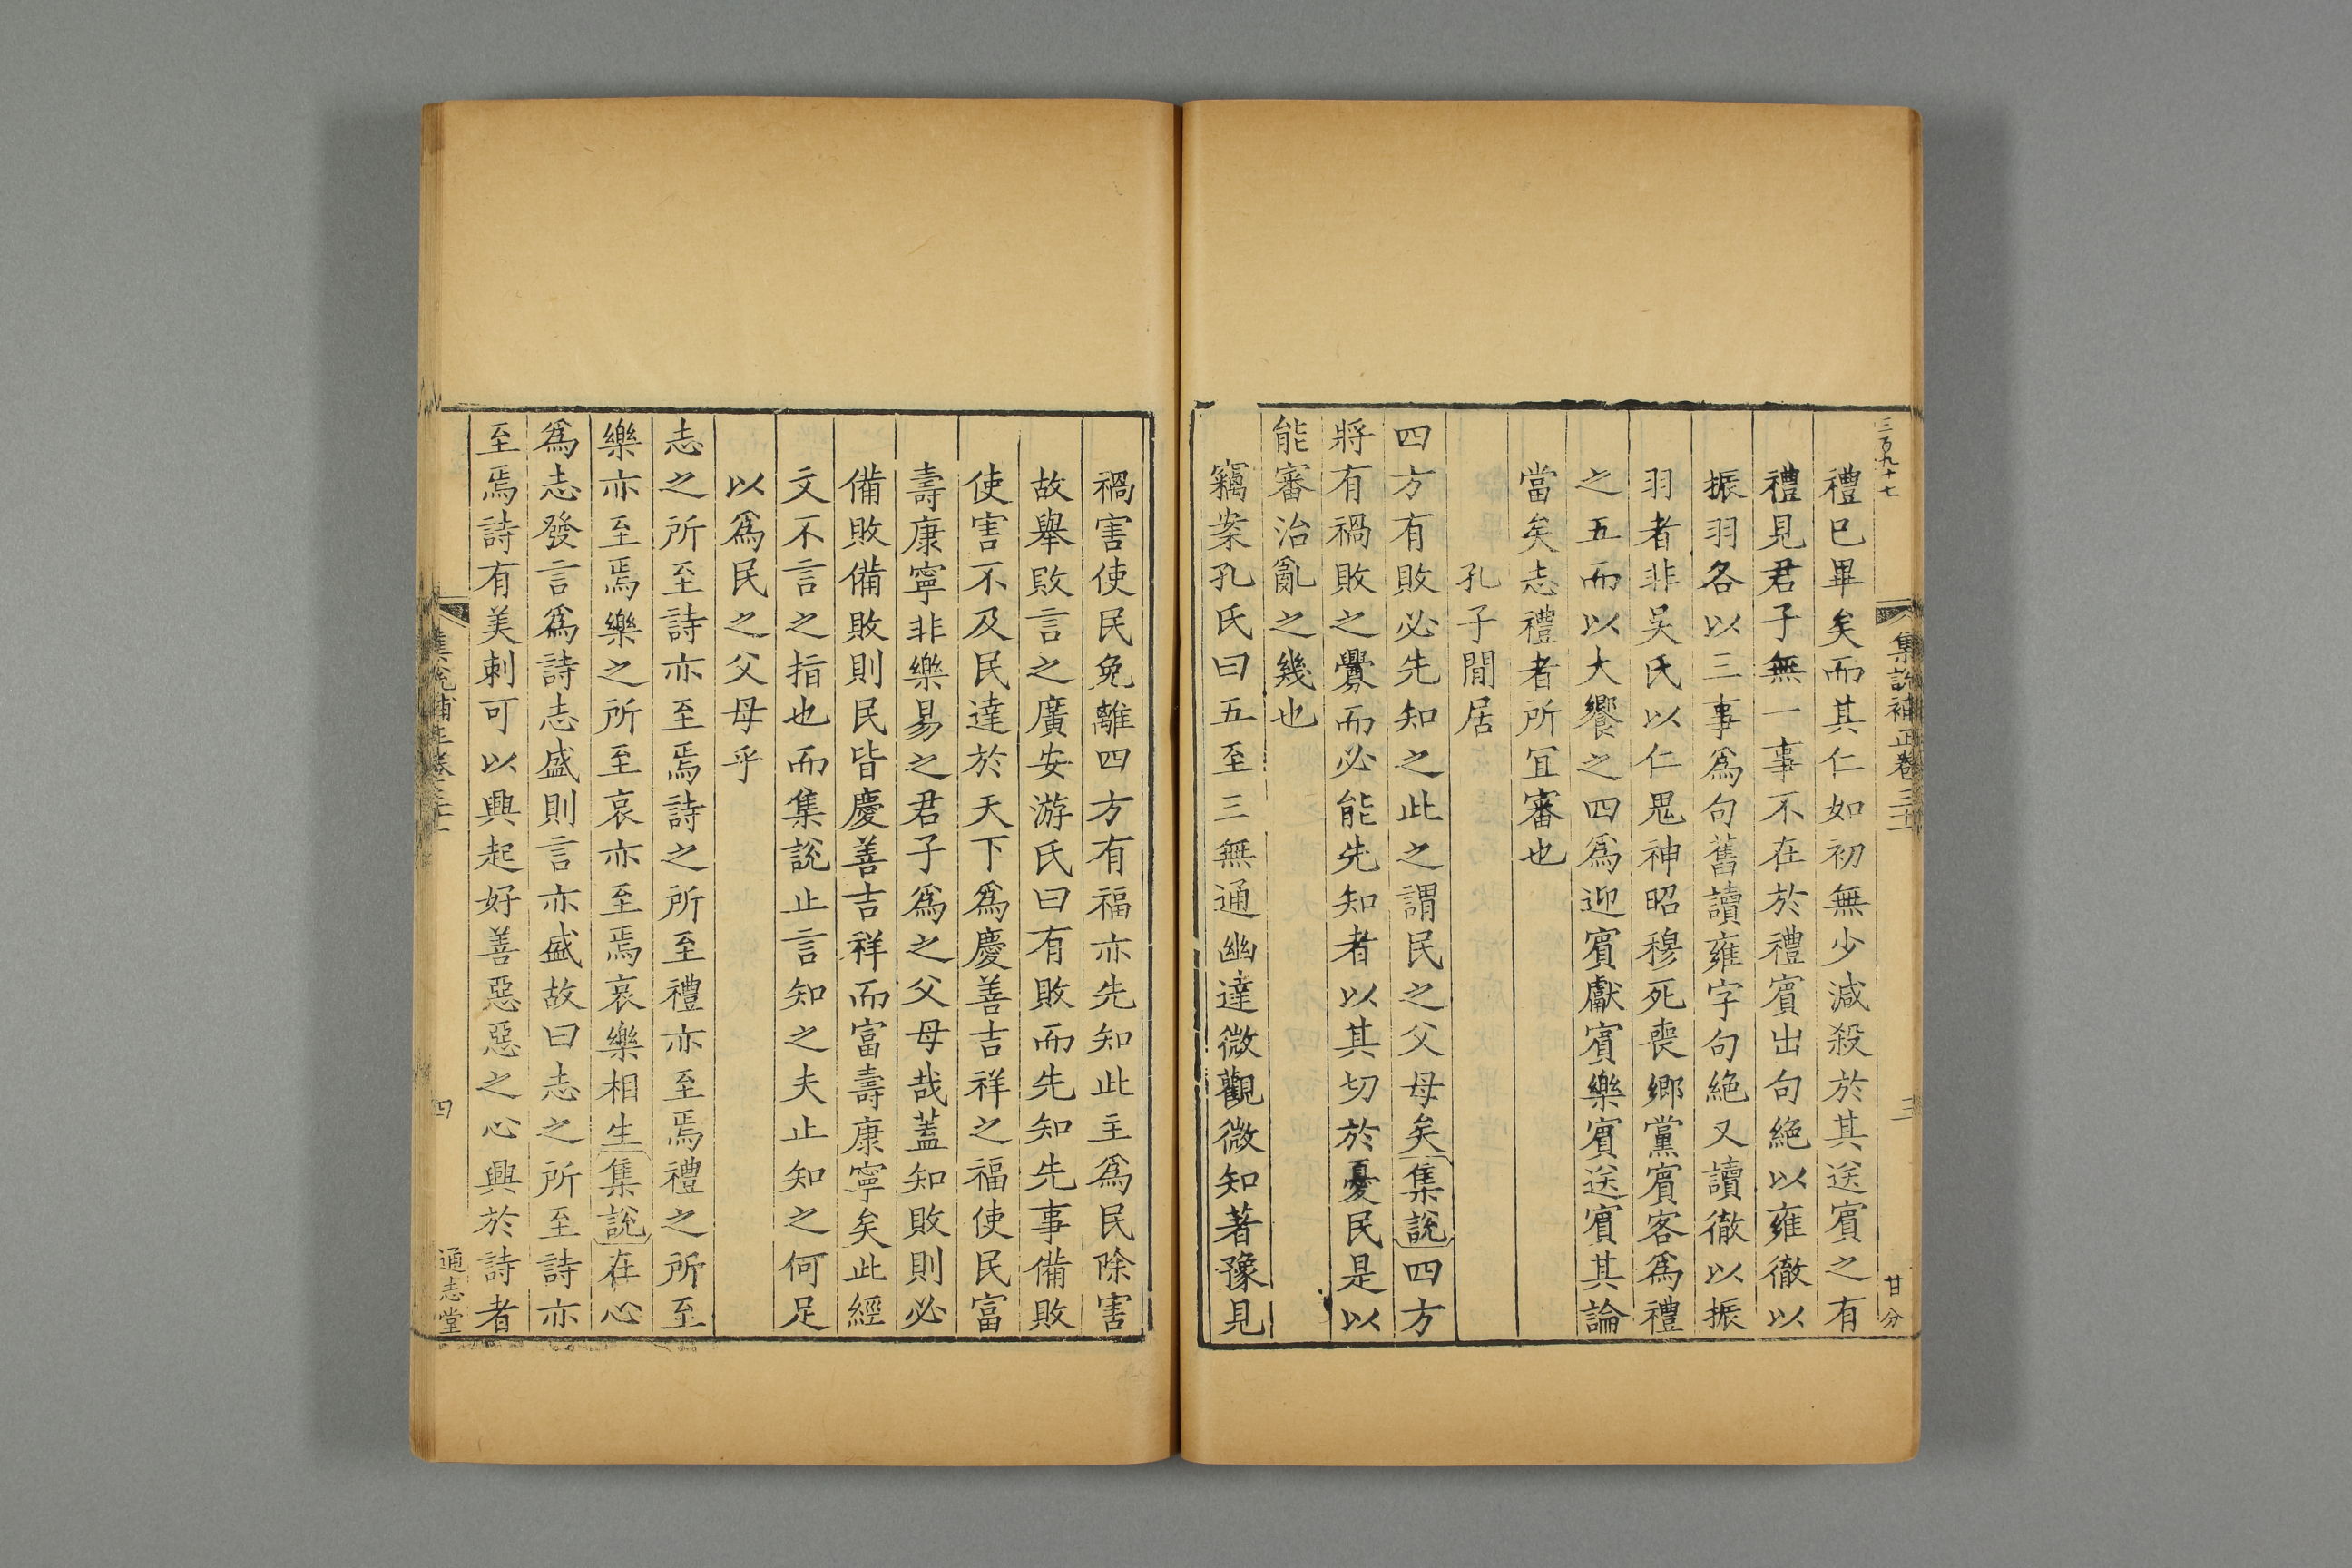 三百九十七
集說補正卷三十
三
甘分
禮已畢矣而其仁如初無少減殺於其送賔之有
禮見君子無一事不在於禮賔出句絶以雍徹以
振羽各以三事爲句舊讀雍字句絶又讀徹以振
羽者非吳氏以仁鬼神昭穆死喪鄉黨賔客爲禮
之五而以大饗之四爲迎賔獻賔樂賔送賔其論
當矣志禮者所宜審也
孔子閒居
四方有敗必先知之此之謂民之父母矣集說四方
將有禍敗之釁而必能先知者以其切於憂民是以
能審治亂之幾也
竊案孔氏曰五至三無通幽達微觀微知著豫見
禍害使民免離四方有福亦先知此主爲民除害
故舉敗言之廣安游氏曰有敗而先知先事備敗
使害不及民達於天下爲慶善吉祥之福使民富
壽康寧非樂易之君子爲之父母哉蓋知敗則必
備敗備敗則民皆慶善吉祥而富壽康寧矣此經
文不言之指也而集說止言知之夫止知之何足
以爲民之父母乎
志之所至詩亦至焉詩之所至禮亦至焉禮之所至
樂亦至焉樂之所至哀亦至焉哀樂相生集說在心
爲志發言爲詩志盛則言亦盛故曰志之所至詩亦
至焉詩有美刺可以興起好善惡惡之心興於詩者
集說補正卷三十
四
通志堂